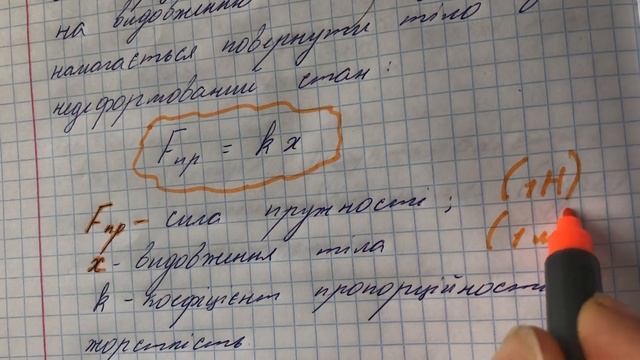 на видовження
намагається повернути тіло
недеформований стан:
Fпр = k x
Fпр - сила пружності; (1Н)
x - видовження тіла (1м
k - коефіцієнт пропорційності
жорсткість